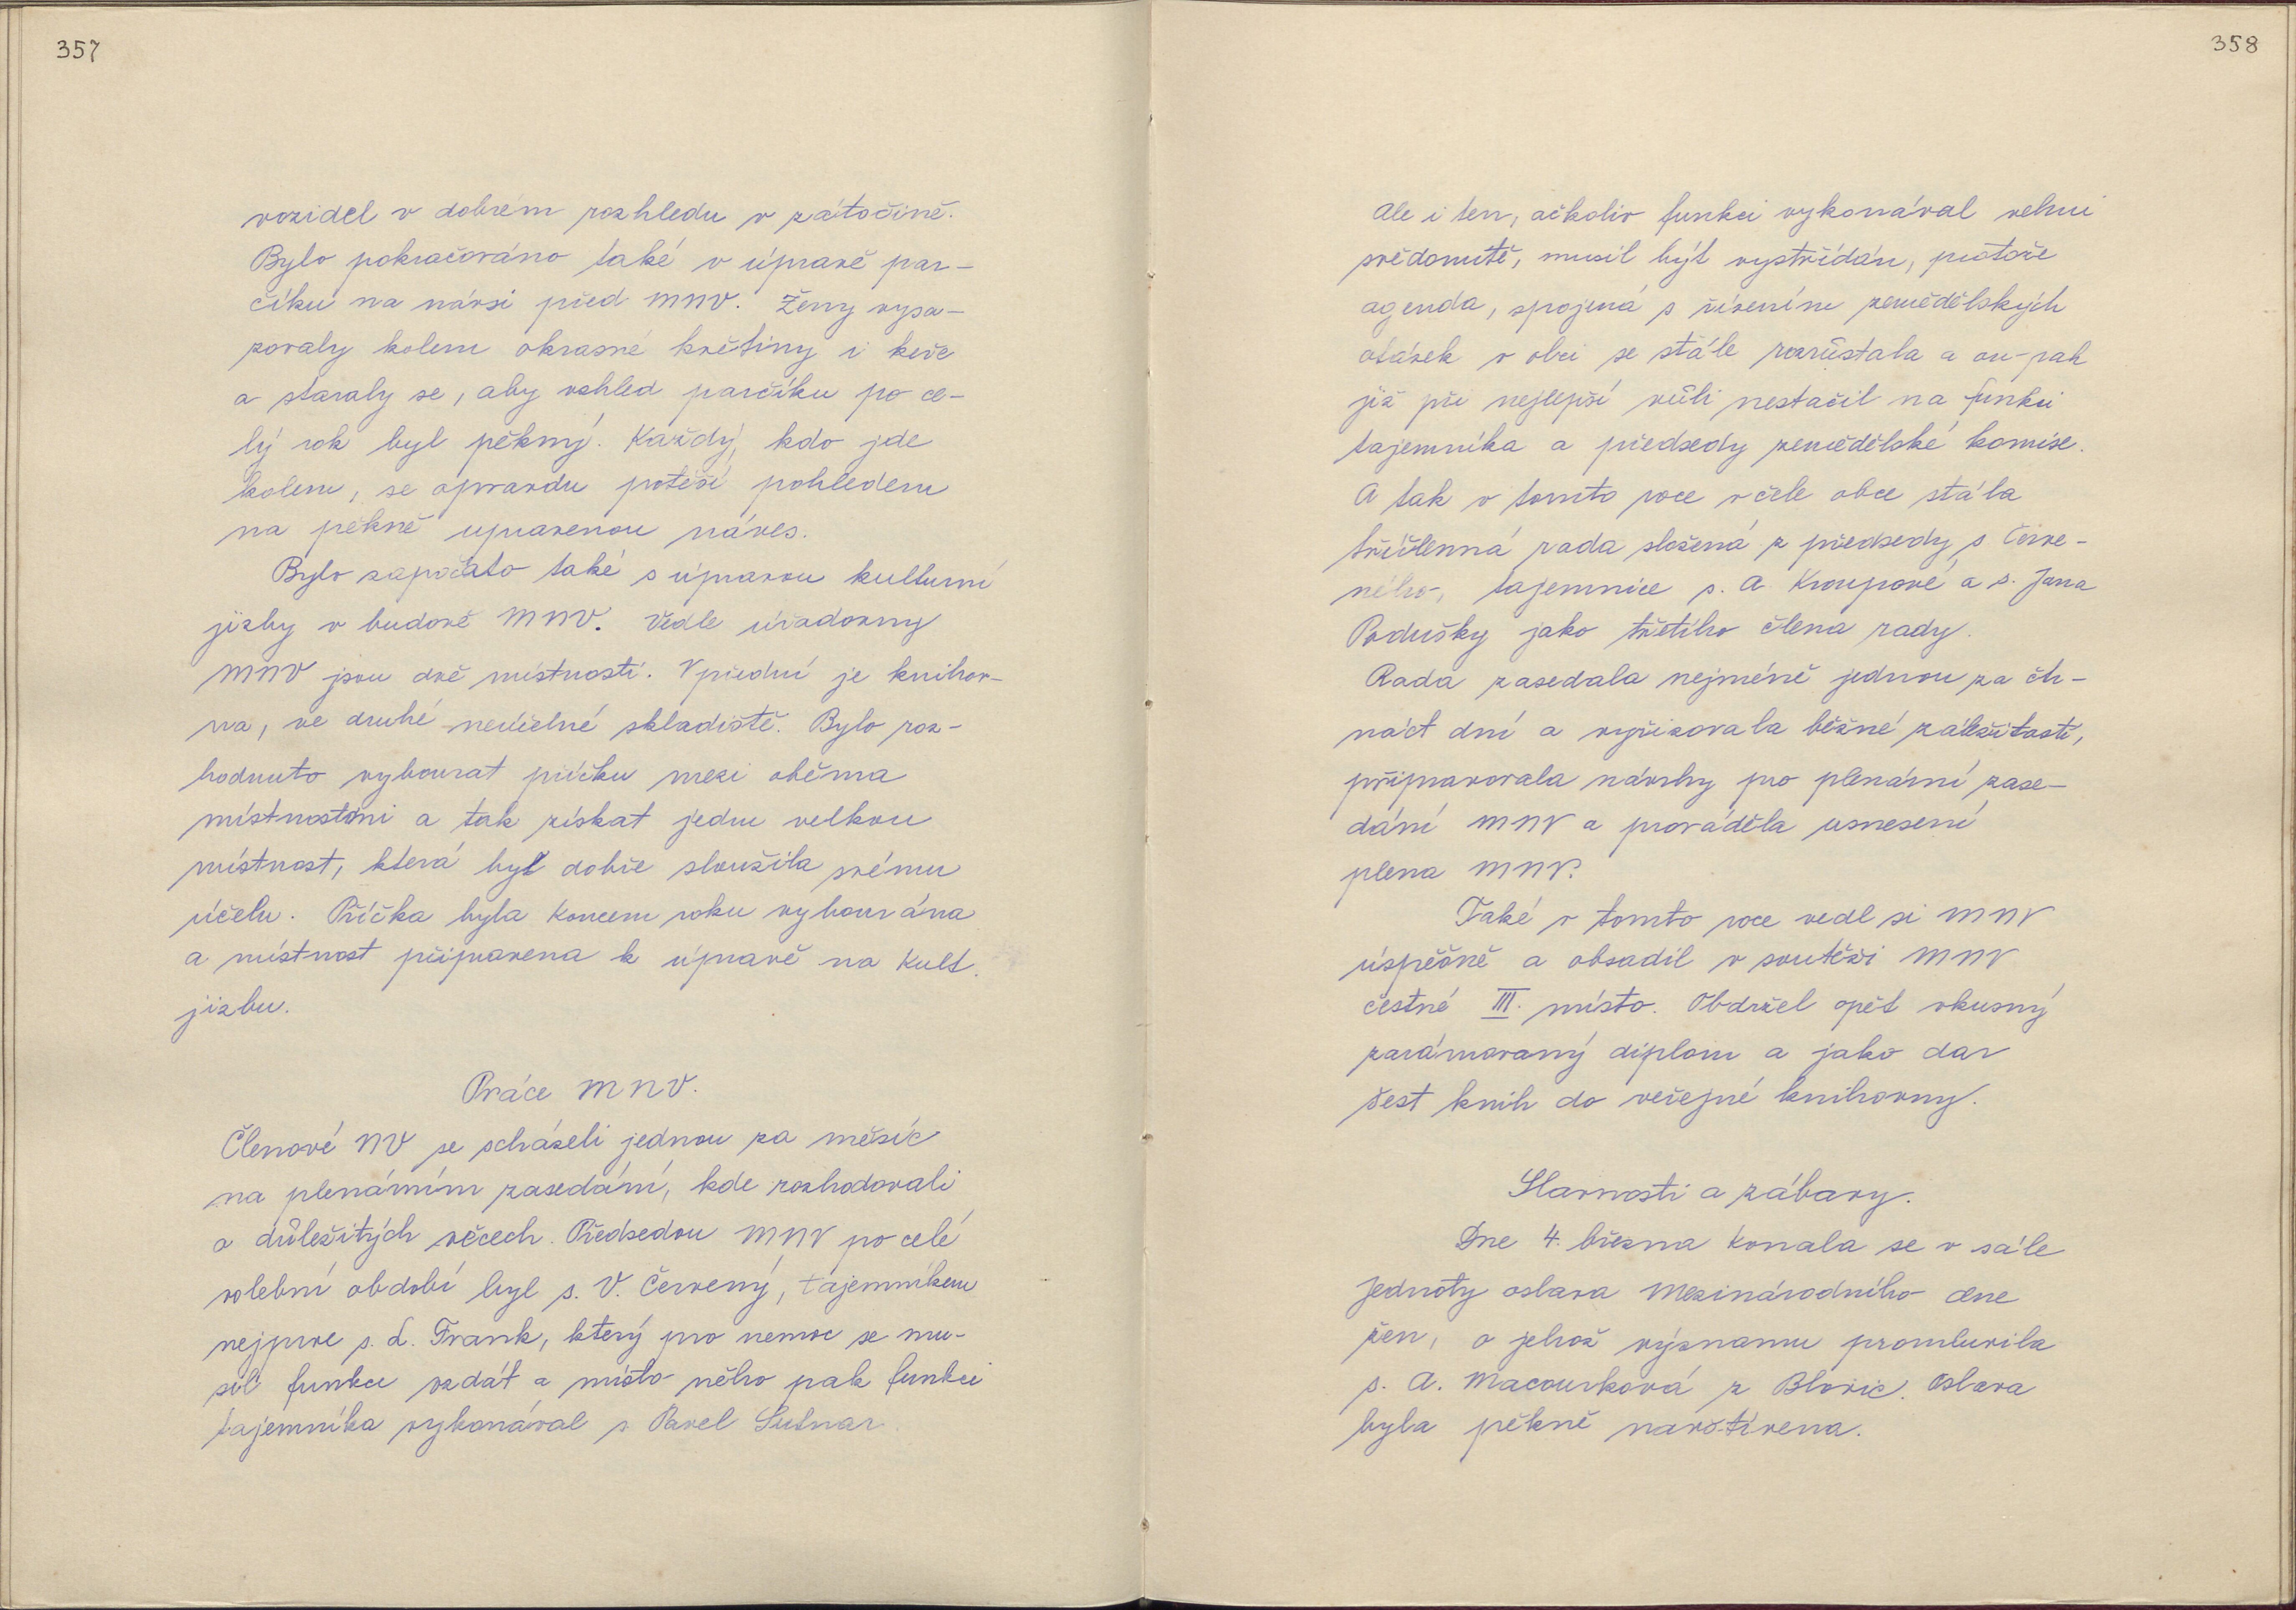 357
vozidel v dobrém rozhledu v zátočině.
Bylo pokračováno také v úpravě par-
číku na návsi před MNV. Ženy vysa-
zovaly kolem okrasné květiny i keře
a staraly se, aby vzhled parčíku po ce-
lý rok byl pěkný. Každý, kdo jde
kolem, se opravdu potěší pohledem
na pěkně upravenou náves.
Bylo započato také s úpravou kulturní
jizby v budově MNV. Vedle úřadovny
MNV jsou dvě místnosti. V přední je knihov-
na, ve druhé neúčelné skladiště. Bylo roz-
hodnuto vybourat příčku mezi oběma
místnostmi a tak získat jednu velkou
místnost, která by dobře sloužila svému
účelu. Příčka byla koncem roku vybourána
a místnost připravena k úpravě na kult.
jizbu.
Práce MNV.
Členové NV se scházeli jednou za měsíc
na plenárním zasedání, kde rozhodovali
o důležitých věcech. Předsedou MNV po celé
volební období byl s. V. Červený, tajemníkem
nejprve s. L. Frank, který pro nemoc se mu-
sil funkce vzdát a místo něho pak funkci
tajemníka vykonával s. Pavel Sutnar.
358
Ale i ten, ačkoliv funkci vykonával velmi
svědomitě, musil být vystřídán, protože
agenda, spojená s řízením zemědělských
otázek v obci se stále rozrůstala a on pak
již při nejlepší vůli nestačil na funkci
tajemníka a předsedy zemědělské komise.
A tak v tomto roce v čele obce stála
tříčlenná rada složená z předsedy s Červe-
ného, tajemnice s. A. Kroupové a s. Jana
Podušky jako třetího člena rady.
Rada zasedala nejméně jednou za čtr-
náct dní a vyřizovala běžné záležitosti,
připravovala návrhy pro plenární zase-
dání MNV a prováděla usnesení
plena MNV.
Také v tomto roce vedl si MNV
úspěšně a obsadil v soutěži MNV
čestné III. místo. Obdržel opět vkusný
zarámovaný diplom a jako dar
šest knih do veřejné knihovny.
Slavnosti a zábavy.
Dne 4. března konala se v sále
Jednoty oslava Mezinárodního dne
žen, o jehož významu promluvila
s. A. Macourková z Blovic. Oslava
byla pěkně navštívena.